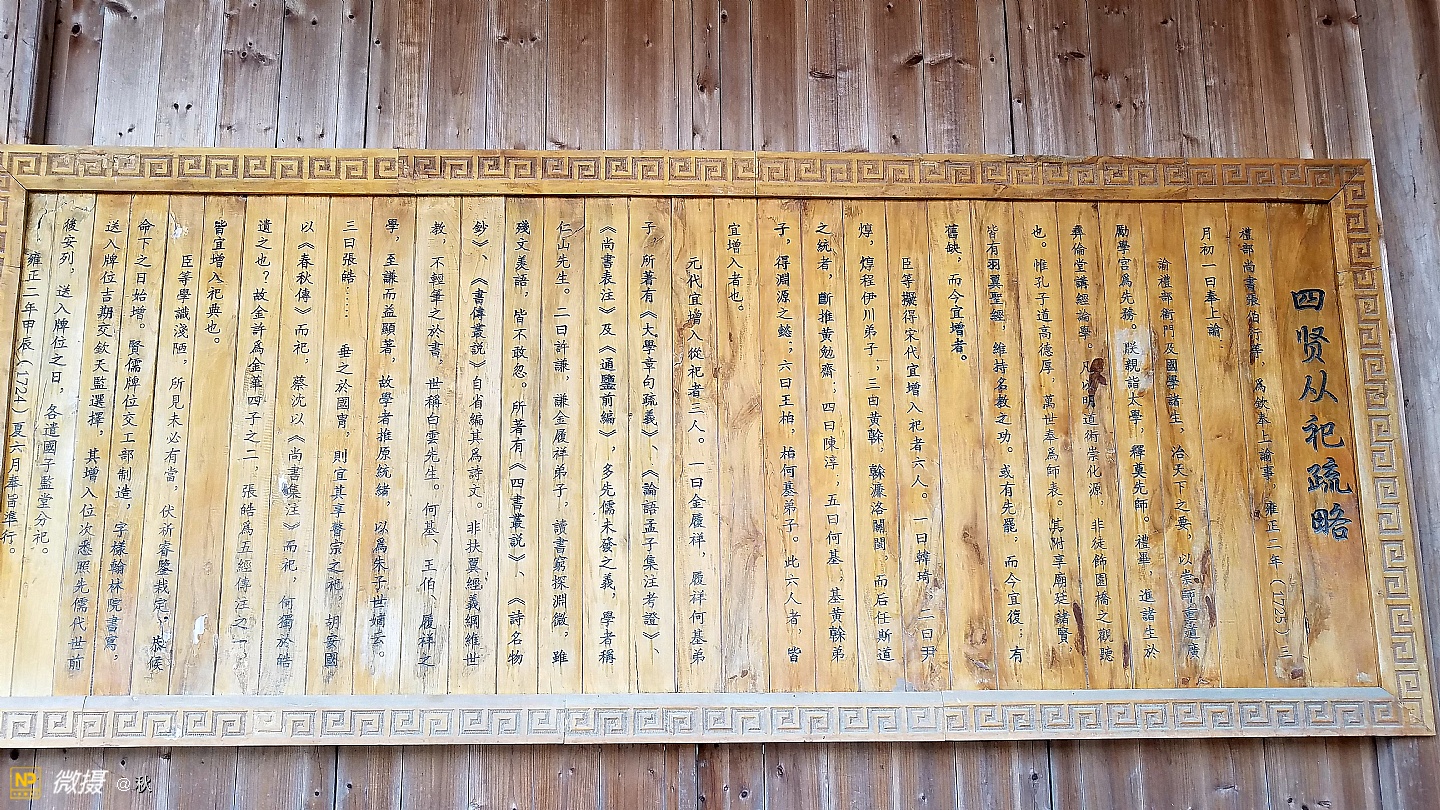 四贤从祀疏略
禮部尚書張伯行等，為欽奉上諭事。雍正三年（1725）三
月初一日奉上諭：
諭禮部衙門及國學諸生，治天下之要，以崇師重道廣
勵學宮為先務。朕親詣太學，釋奠先師。禮畢，進諸生於
彝倫堂講經論學。凡以明道術崇化源，非徒飾圜橋之觀聽
也。惟孔子道高德厚，萬世奉為師表。其附享廟廷諸賢，
皆有羽翼聖經，維持名教之功。或有先罷，而今宜復；有
舊缺，而今宜增者。
臣等擬得宋代宜增入從祀者六人。一曰韓琦，二曰尹
焞，焞程伊川弟子；三曰黃榦，榦濂洛關閩，而后任斯道
之統者，斷推黃勉齋；四曰陳淳，五曰何基；基黃榦弟
子，得淵源之懿；六曰王柏，柏何基弟子。此六人者，皆
宜增入者也。
元代宜增入從祀者三人。一曰金履祥，履祥何基弟
子，所著有《大學章句疏義》、《論語孟子集注考證》、
《尚書表注》及《通鑒前編》，多先儒未發之義，學者稱
仁山先生。二曰許謙，謙金履祥弟子，讀書窮探淵微，雖
殘文羨語，皆不敢忽。所著有《四書叢說》、《詩名物
鈔》、《書傳叢說》自省編其為詩文。非扶翼經義綱維世
教，不輕筆之於書，世稱白雲先生。何基、王伯、履祥之
學，至謙而益顯著，故學者推原統緒，以為朱子世嫡云。
三曰張䇓……垂之於國胄，則宜其享瞽宗之祀。胡安國
以《春秋傳》而祀，蔡沈以《尚書集注》而祀，何獨於䇓
遺之也？故金許為金華四子之二，張䇓為五經傳注之一，
皆宜增入祀典也。
臣等學識淺陋，所見未必有當，伏祈睿鑒裁定，恭候
命下之日始增。賢儒牌位交工部制造，字樣翰林院書寫，
送入牌位吉期交欽天監選擇，其增入位次悉照先儒代世前
後安列，送入牌位之日，各遣國子監堂分祀。
雍正二年甲辰（1724）夏六月奉旨準行。
微摄 @秋